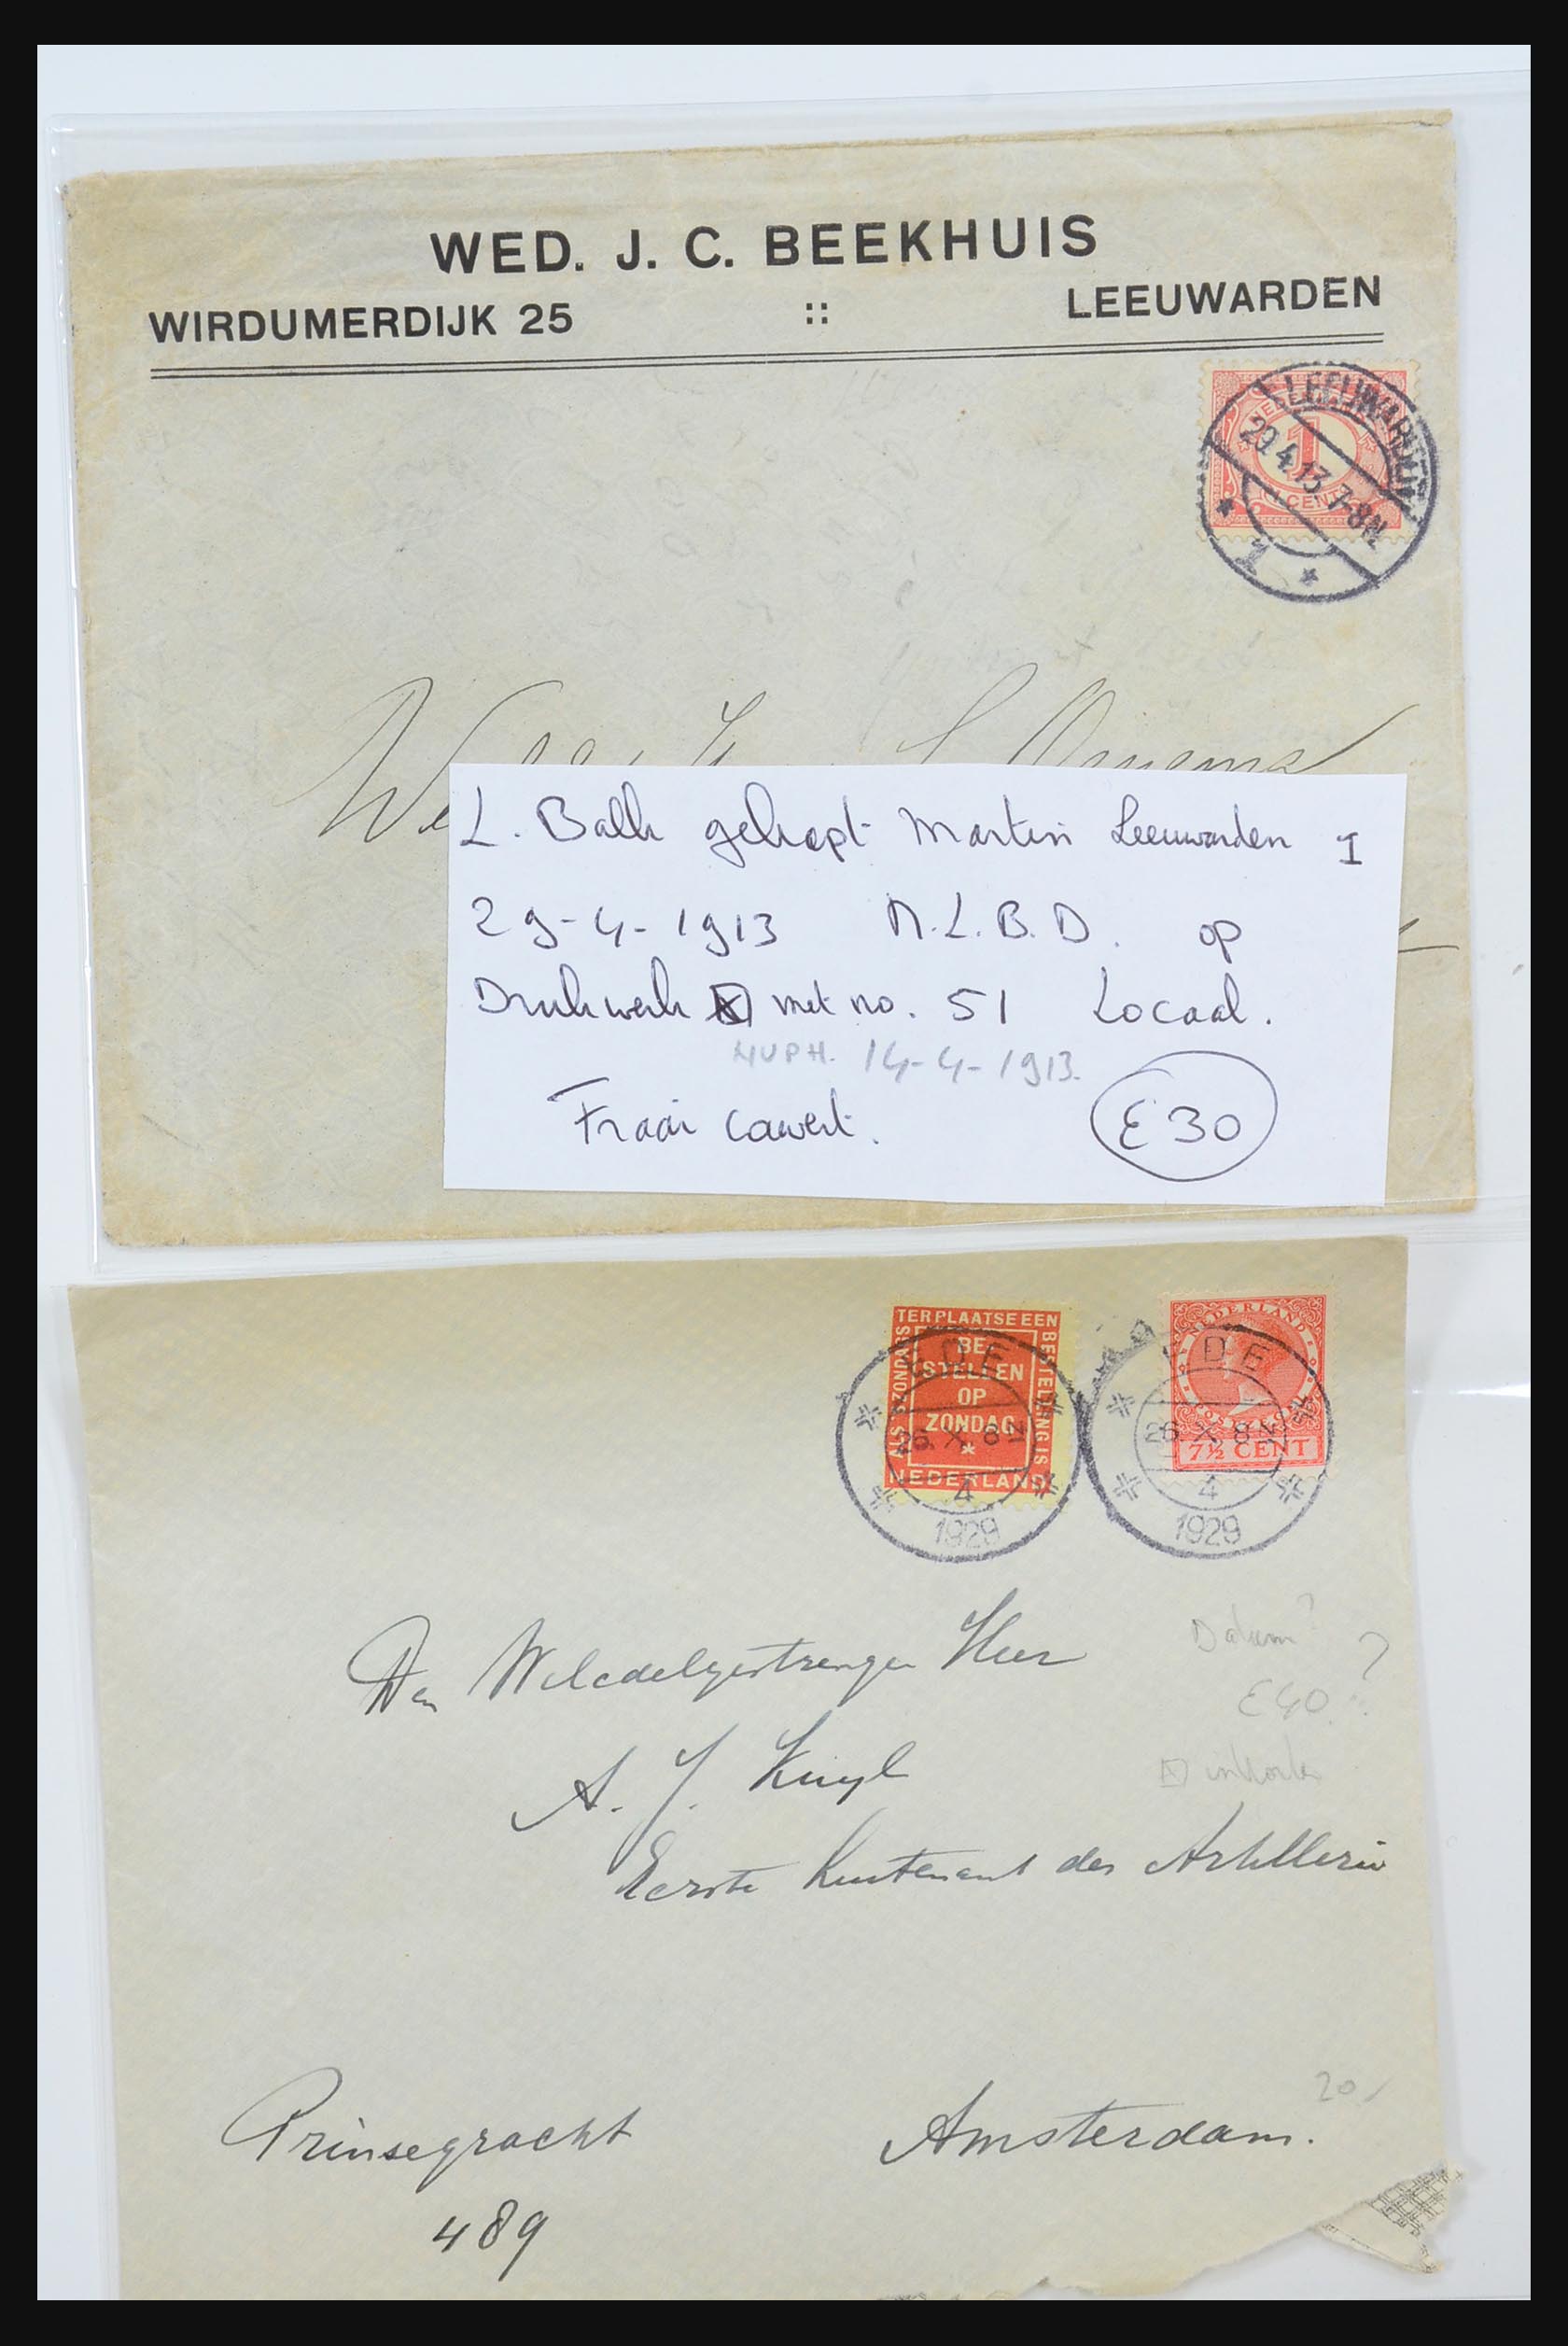 WED. J. C. BEEKHUIS
WIRDUMERDIJK 25 :: LEEUWARDEN
LEEUWARDEN
29.4.13.7-8N
1
NEDERLAND
1
CENT
L. Balk gekopt Martin Leeuwarden I
29-4-1913 N.L.B.D. op
Drukwerk met no. 51 Locaal.
NVPH. 14-4-1913.
Fraai couvert. €30
TER PLAATSE EEN
BESTELLING IS
ALS 'S ZONDAGS
BE
STELLEN
OP
ZONDAG
*
NEDERLAND
EDE
26.X.8N
4
1929
NEDERLAND
7½ CENT
EDE
26.X.8N
4
1929
Den Weledelgestrengen Heer
Datum?
?
€40.?
A. J. Kuyl
Eerste Luitenant der Artillerie
20
Prinsegracht Amsterdam.
489